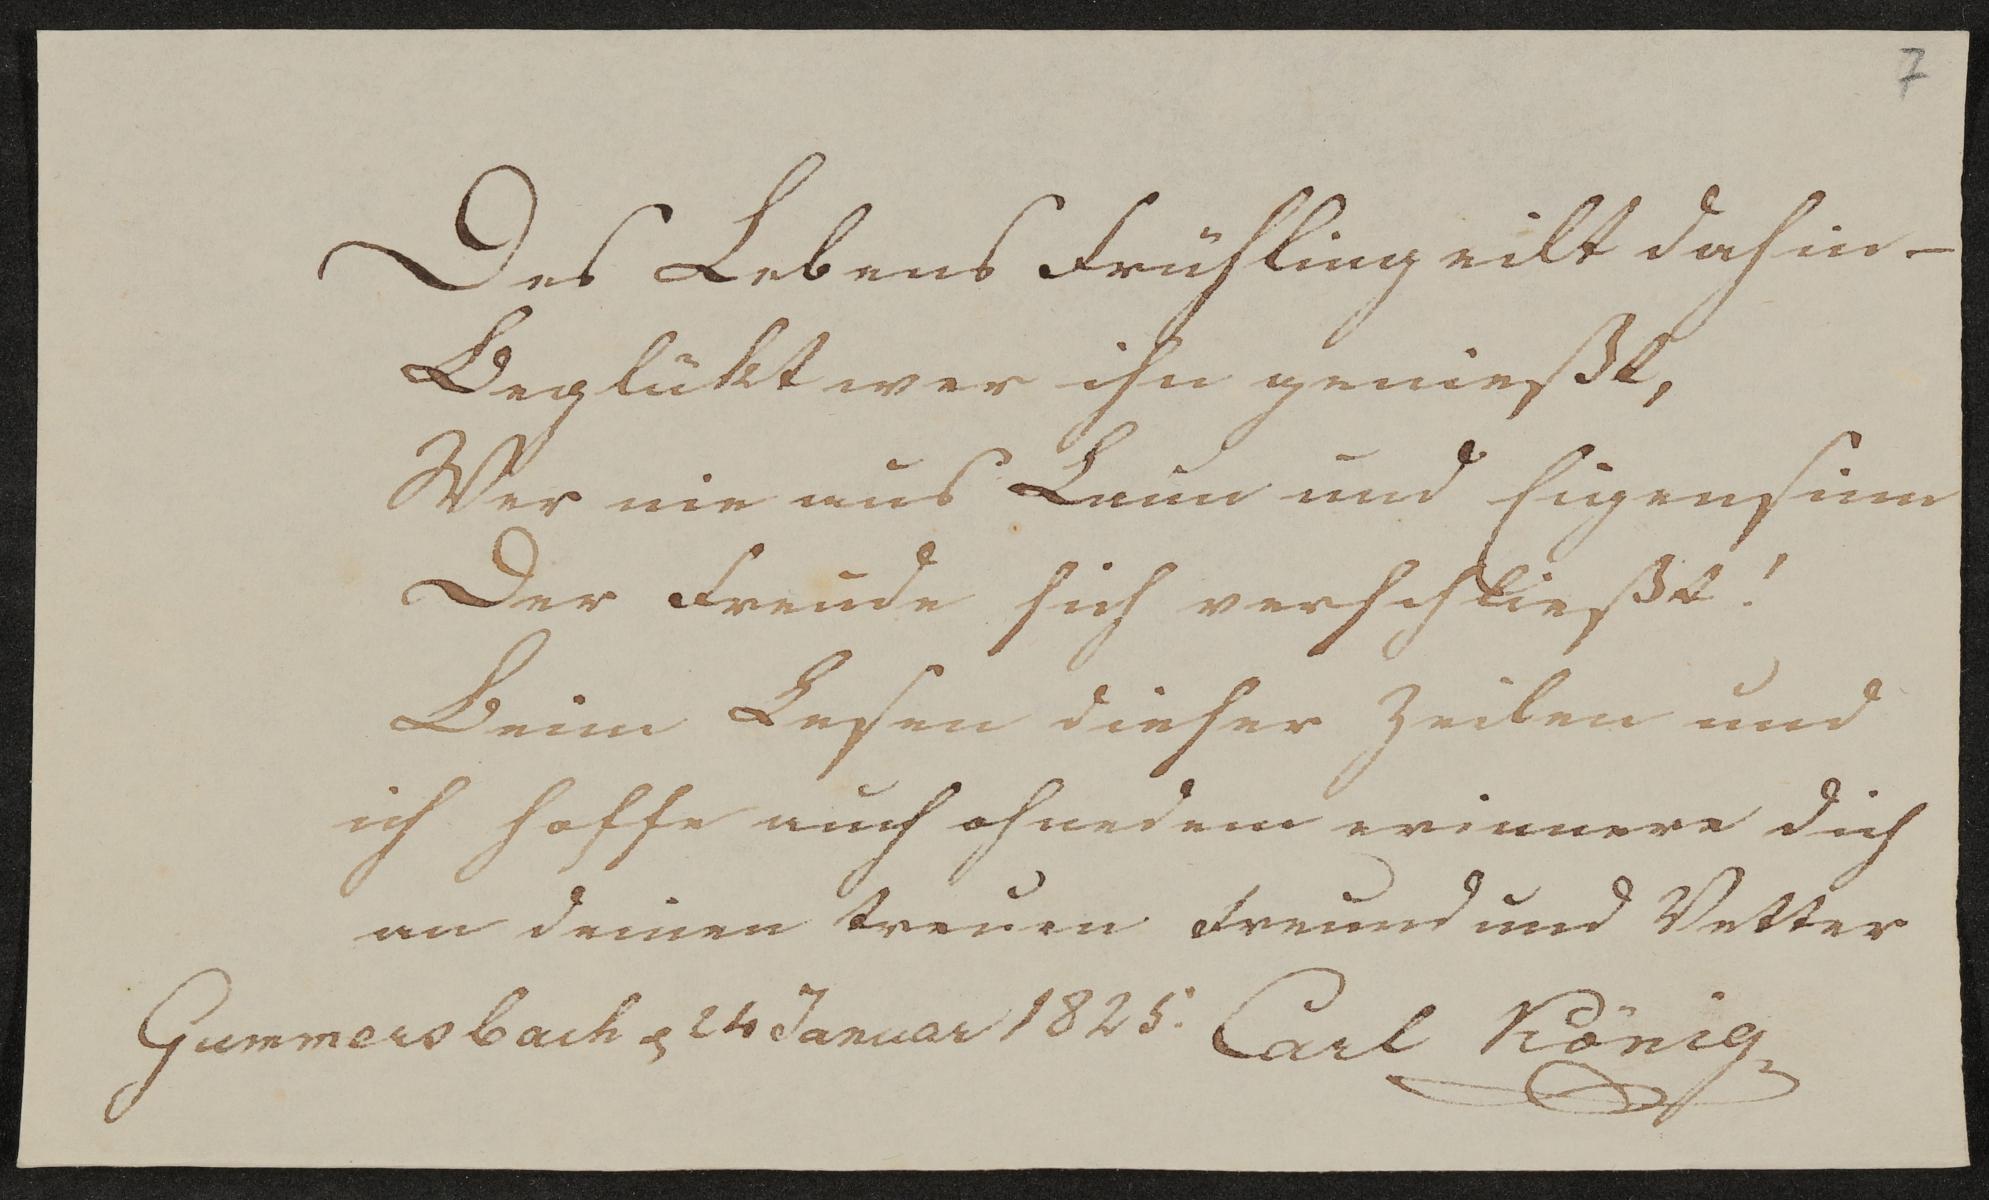 7
Des Lebens Frühling eilt dahin –
Beglükt wer ihn genießt,
Wer nie aus Laun und Eigensinn
Der Freude sich verschließt!
Beim Lesen dieser Zeilen und
ich hoffe auch ohnedem erinnere dich
an deinen treuen Freund und Vetter
Gummersbach 24 Januar 1825. Carl König